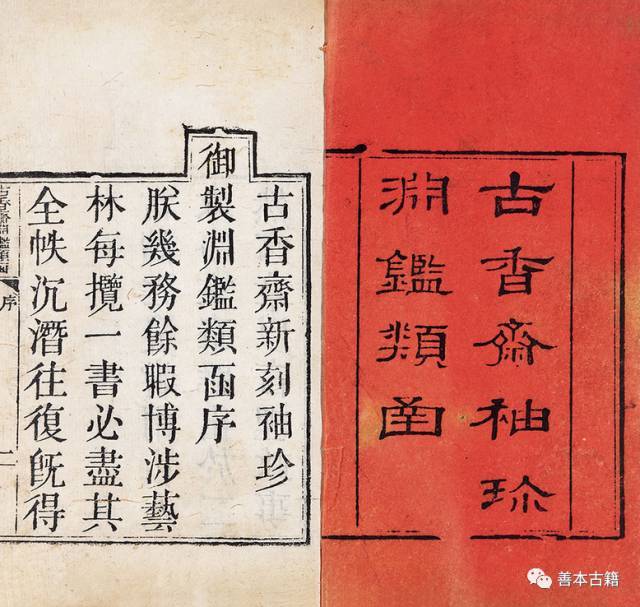 古香齋袖珎
淵鑑類凾
古香齋新刻袖珍
御製淵鑑類凾序
朕幾務餘暇博涉藝
林每攬一書必盡其
全帙沉潛徃復旣得
序
二
善本古籍